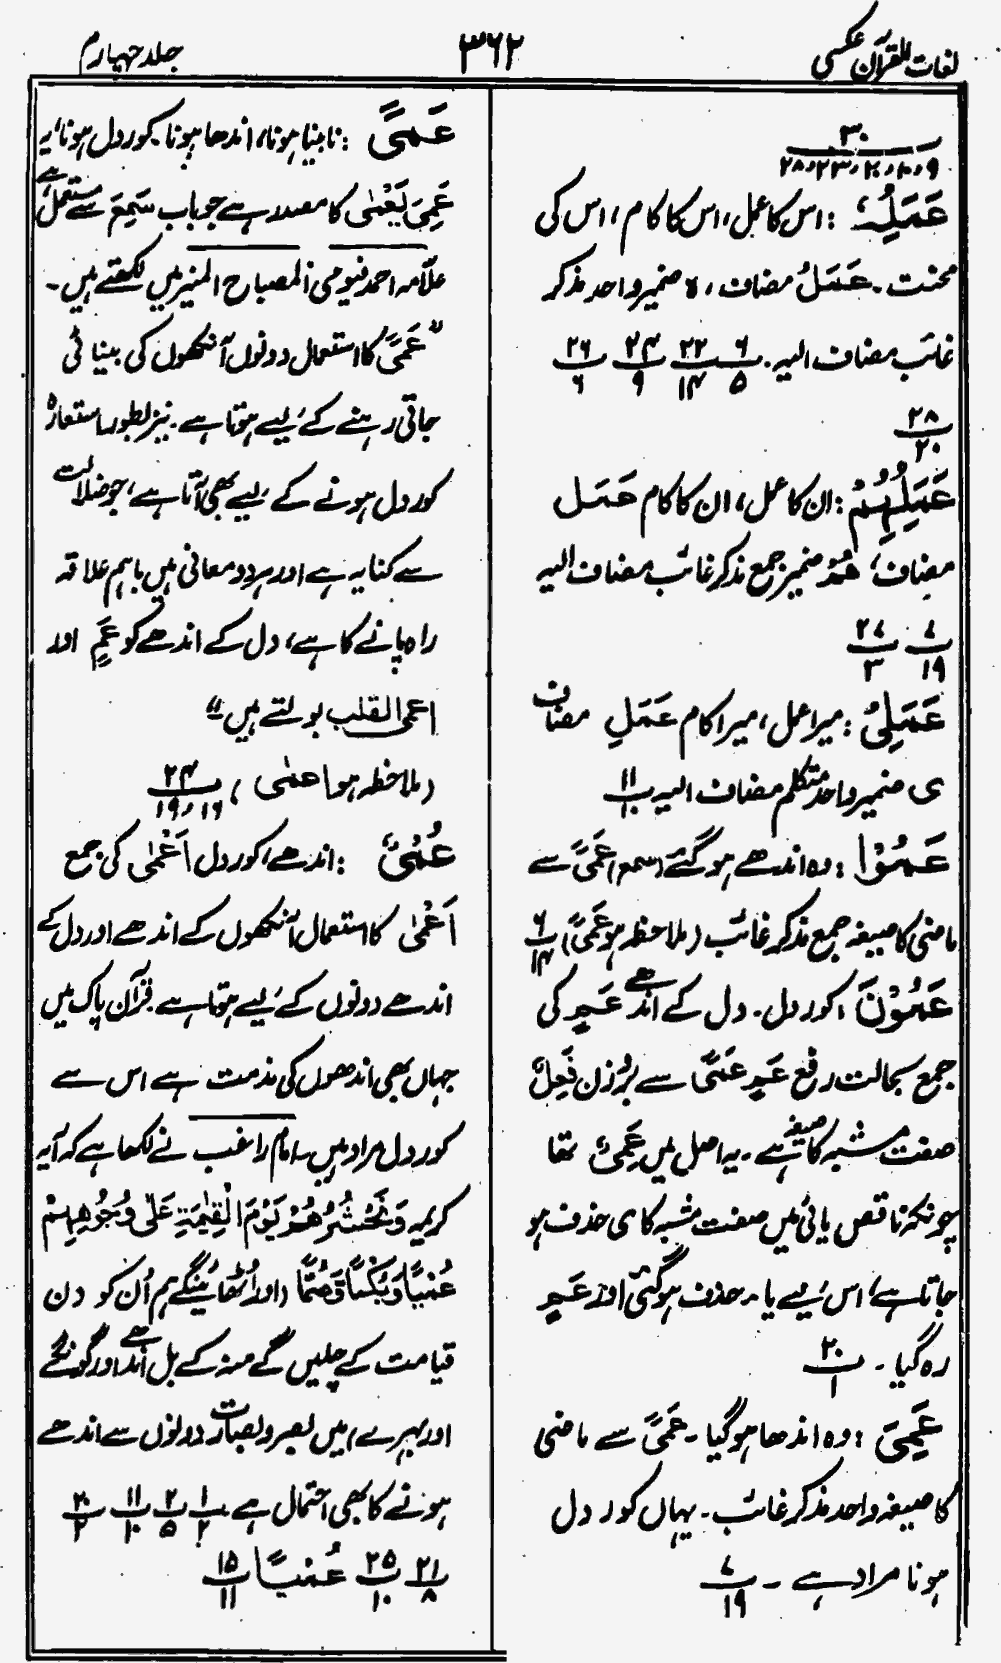 لغات القرآن عکسی
۳۶۲
جلد چہارم
۳۰
۹، ۱۰، ۲۰، ۲۳، ۲۸
عَمَلِہٖ : اس کا عمل، اس کا کام، اس کی
محنت۔ عَمَلُ مضاف، ہ ضمیر واحد مذکر
غائب مضاف الیہ۔ ۶/۵ ۲۲/۱۴ ۲۴/۹ ۲۶/۶
۲۸/۲۰
عَمَلِہِمْ : ان کا عمل، ان کا کام عَمَلِ
مضاف، ھُمْ ضمیر جمع مذکر غائب مضاف الیہ
۷/۱۹ ۲۷/۳
عَمَلِیْ : میرا عمل، میرا کام عَمَلِ مضاف
ی ضمیر واحد متکلم مضاف الیہ ۱۱/۱۰
عَمُوْا : وہ اندھے ہو گئے (سمع) عَمًی سے
ماضی کا صیغہ جمع مذکر غائب (ملاحظہ ہو عَمًی) ۶/۱۴
عَمُوْنَ ، کور دل۔ دل کے اندھے عَمٍ کی
جمع بحالت رفع عَمٍ عَمًی سے بروزن فَعِلٌ
صفت مشبہ کا صیغہ ہے۔ یہ اصل میں عَمِیٌ تھا
چونکہ ناقص یائی میں صفت مشبہ کا ی حذف ہو
جاتا ہے، اس لیے یاء حذف ہو گئی اور عَمٍ
رہ گیا۔ ۲۰/۱
عَمِیَ : وہ اندھا ہو گیا۔ عَمًی سے ماضی
کا صیغہ واحد مذکر غائب۔ یہاں کور دل
ہونا مراد ہے ۔ ۷/۱۹
عَمًی : نابینا ہونا، اندھا ہونا۔ کور دل ہونا، یہ
عَمِیَ یَعْمٰی کا مصدر ہے جو باب سَمِعَ سے مستعمل ہے
علّامہ احمد فیومی المصباح المنیر میں لکھتے ہیں۔
” عَمًی کا استعمال دونوں آنکھوں کی بینائی
جاتی رہنے کے لیے ہوتا ہے۔ نیز بطور استعارہ
کور دل ہونے کے لیے بھی آتا ہے، جو ضلالت
سے کنایہ ہے اور ہر دو معانی میں باہم علاقہ
راہ پانے کا ہے، دل کے اندھے کو عَمٍ اور
اعمی القلب بولتے ہیں “
(ملاحظہ ہو اعمٰی) ۲۴/۱۶، ۱۹
عُمْیٌ : اندھے، کور دل اَعْمٰی کی جمع
اَعْمٰی کا استعمال آنکھوں کے اندھے اور دل کے
اندھے دونوں کے لیے ہوتا ہے قرآن پاک میں
جہاں بھی اندھوں کی مذمت ہے اس سے
کور دل مراد ہیں۔ امام راغب نے لکھا ہے کہ آیہ
کریمہ وَنَحْشُرُھُمْ یَوْمَ الْقِیٰمَۃِ عَلٰی وُجُوْہِہِمْ
عُمْیًا وَّبُکْمًا وَّصُمًّا (اور اُٹھائینگے ہم اُن کو دن
قیامت کے چلیں گے منہ کے بل اندھے اور گونگے
اور بہرے) میں بصر و بصارت دونوں سے اندھے
ہونے کا بھی احتمال ہے ۱/۲ ۲/۵ ۱۱/۱۰ ۲۰/۲
۲۱/۸ ۲۵/۱۰ عُمْیًا ۱۵/۱۱